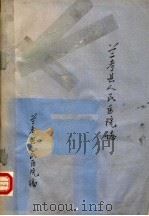 兰考县人民医院编
兰考县人民医院编